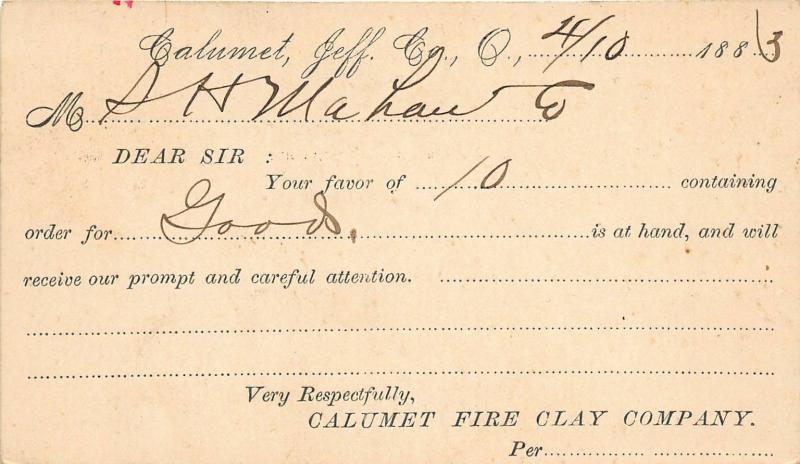 Calumet, Jeff. Co., O., 4/10 1883
M S H Mahan Co
DEAR SIR :
Your favor of 10 containing
order for Goods, is at hand, and will
receive our prompt and careful attention.
Very Respectfully,
CALUMET FIRE CLAY COMPANY.
Per